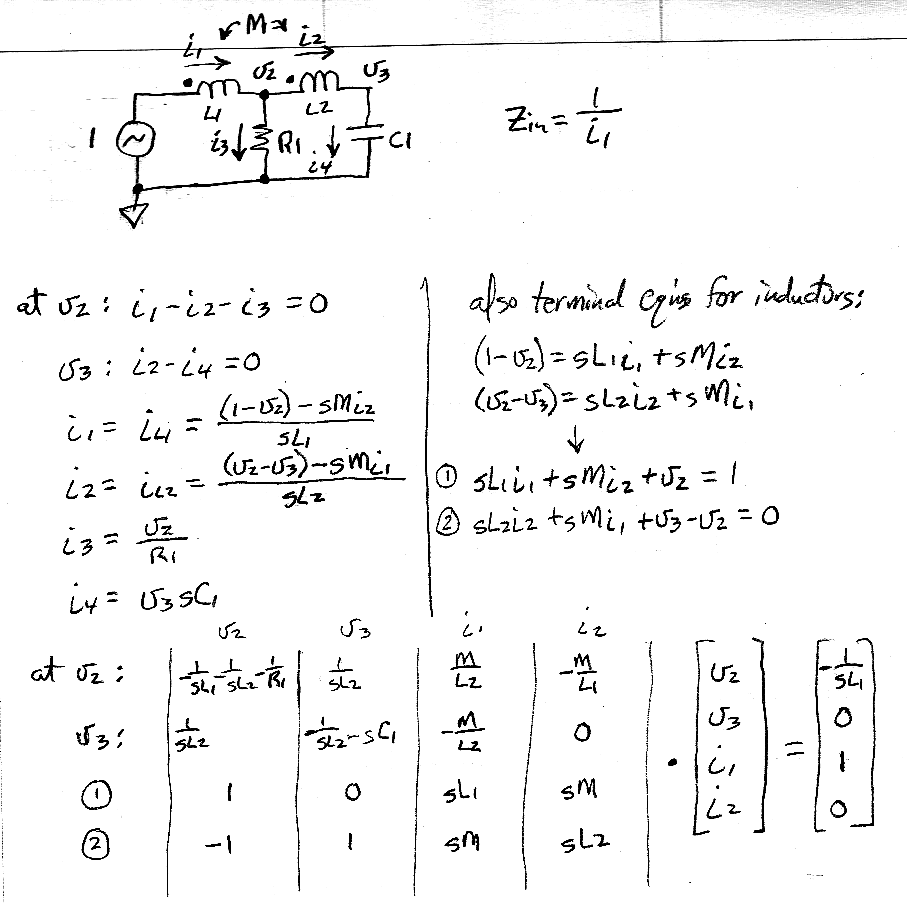 M
i1 i2
v2 v3
L1 L2
1 i3 R1 i4 C1
Zin = 1/i1
at v2: i1 - i2 - i3 = 0
v3: i2 - i4 = 0
i1 = iL1 = ((1-v2) - sMi2)/sL1
i2 = iL2 = ((v2-v3) - sMi1)/sL2
i3 = v2/R1
i4 = v3sC1
also terminal eqins for inductors:
(1-v2) = sL1i1 + sMi2
(v2-v3) = sL2i2 + sMi1
↓
① sL1i1 + sMi2 + v2 = 1
② sL2i2 + sMi1 + v3 - v2 = 0
v2 v3 i1 i2
at v2: | -1/sL1 - 1/sL2 - 1/R1 | 1/sL2 | M/L2 | -M/L1 | [v2] [-1/sL1]
v3: | 1/sL2 | -1/sL2 - sC1 | -M/L2 | 0 | [v3] [0]
① | 1 | 0 | sL1 | sM | · [i1] = [1]
② | -1 | 1 | sM | sL2 | [i2] [0]